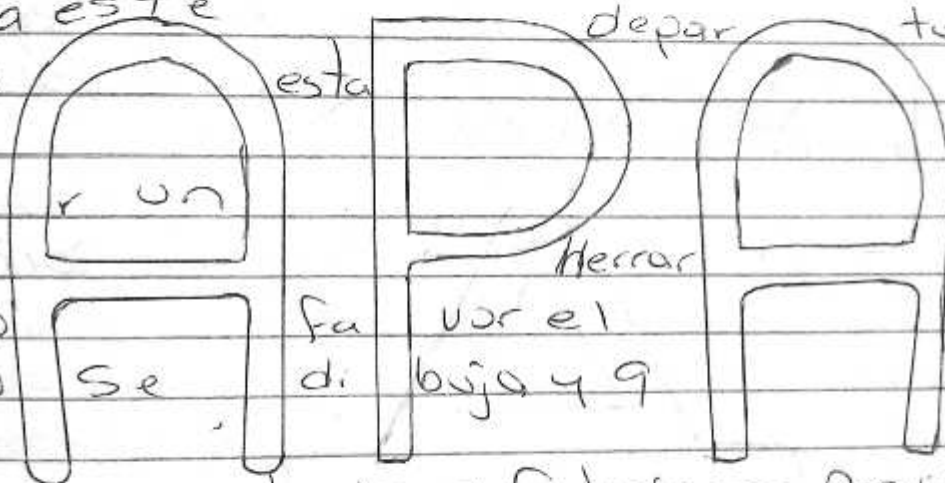 a este depar tu
esta
APA
r un
Herrar
fa vor el
Se di buja y 9